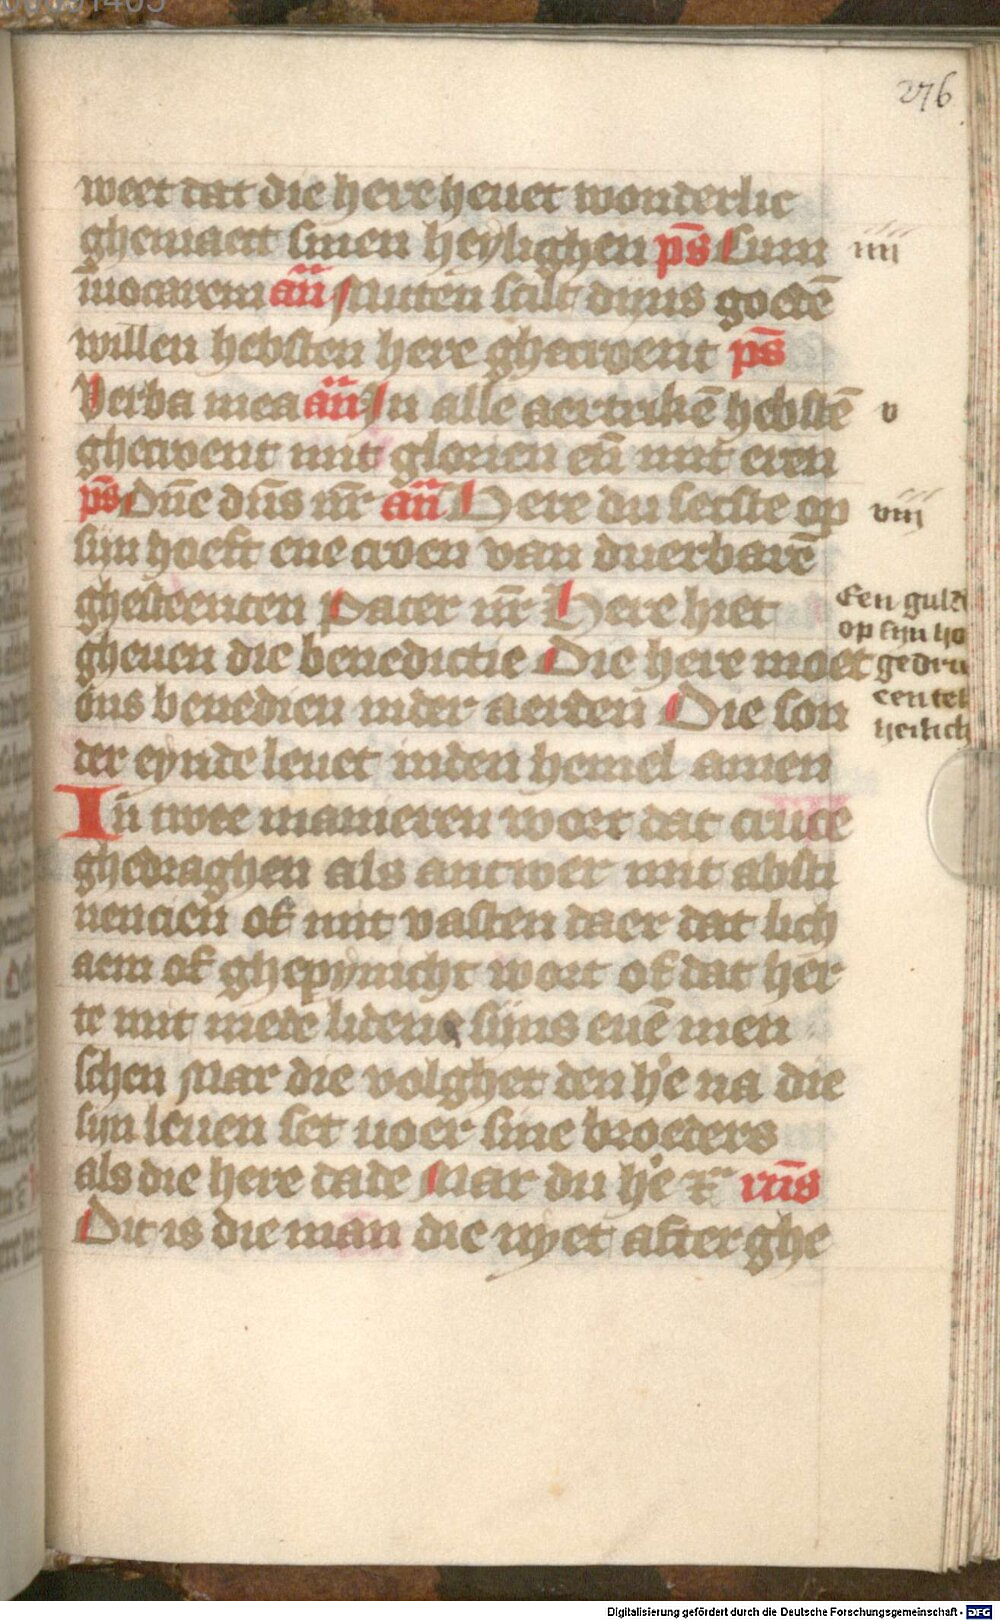 276
weet dat die here heuet wonderlic
ghemaect sinen heylighen p̄s Cum iiii
īuocarem añ Mitten scilt dijns goedē
willen hebsten here ghecroent p̄s
Verba mea añ In alle aertrikē hebstē v
ghecroent mit glorien eñ mit eren
p̄s Dn̄e dn̄s nr̄ añ Here du settste op viii
sijn hoeft ene croen van duerbarē
ghesteenten Pater nr̄ Here hiet
gheuen die benedictie Die here moet
ons benedien inder aerden Die son
der eynde leuet inden hemel amen
Een guld
op sijn ho
gedru
een tek
heilich
In twee manieren wort dat cruce
ghedraghen als antwer mit absti
nencien of mit vasten daer dat lich
aem of ghepynicht wort of dat her
te mit mede liden sijns euē men
schen Mar die volghet den he na die
sijn leuen set voer sine broeders
als die here dade Mar du he rn̄s
Dit is die man die nyet after ghe
Digitalisierung gefördert durch die Deutsche Forschungsgemeinschaft - DFG